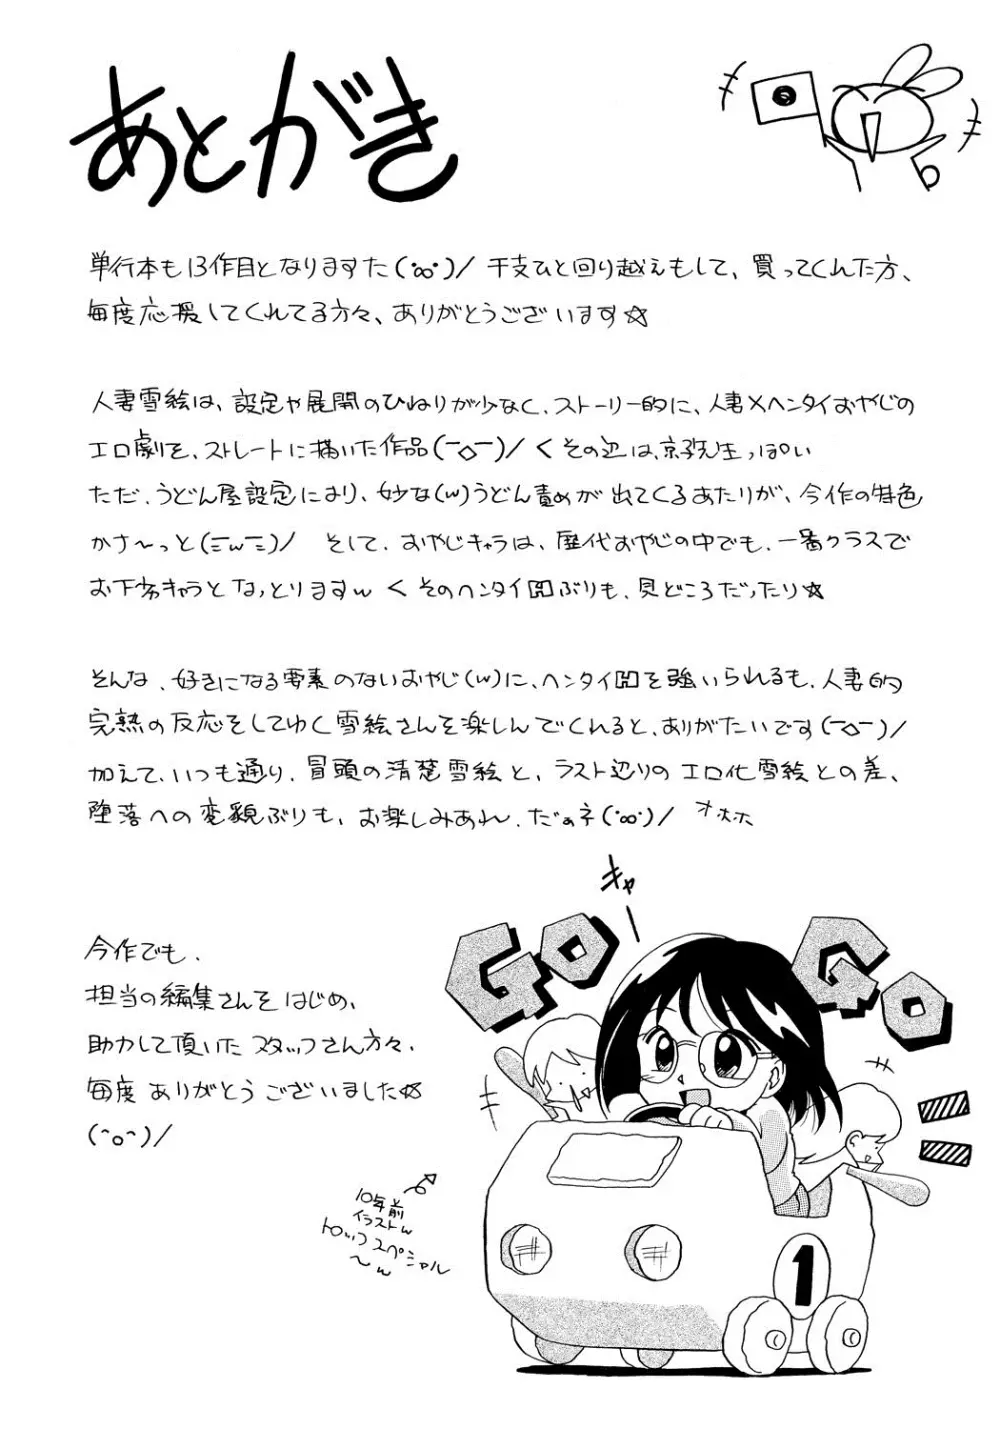 あとがき
単行本も13作目となりますた(°∞°)/ 干支ひと回り越えもして、買ってくんた方、
毎度応援してくれてる方々、ありがとうございます☆
人妻雪絵は、設定や展開のひねりが少なく、ストーリー的に、人妻×ヘンタイおやじの
エロ劇を、ストレートに描いた作品(￣◇￣)/ くその辺は、京子先生っぽい
ただ、うどん屋設定により、妙な(w)うどん責めが出てくるあたりが、今作の特色
かナ〜っと(ﾆwﾆ)/ そして、おやじキャラは、歴代おやじの中でも、一番クラスで
お下劣キャラとなっとりますw くそのヘンタイHぶりも、見どころだったり☆
そんな、好きになる要素のないおやじ(w)に、ヘンタイHを強いられるも、人妻的
完熟の反応をしてゆく雪絵さんを楽しんでくれると、ありがたいです(￣◇￣)/
加えて、いつも通り、冒頭の清楚雪絵と、ラスト辺りのエロ化雪絵との差、
堕落への変貌ぶりも、お楽しみあれ、だぁネ(°∞°)/ オホホ
キャー
GO GO
今作でも、
担当の編集さんをはじめ、
助力して頂いたスタッフさん方々、
毎度ありがとうございました☆
(^o^)/
10年前
イラストw
トップスペシャル
〜w
1